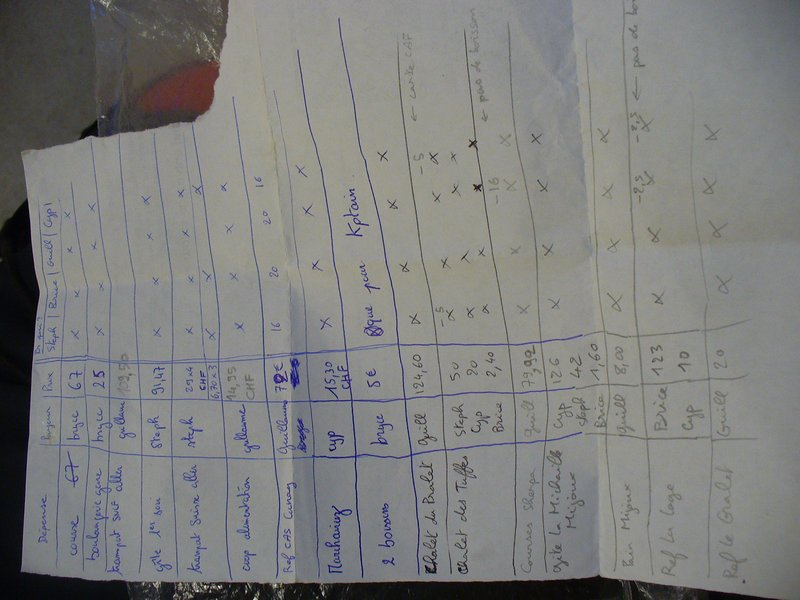 Dépense | Payeur | Prix | Di pour? Steph | Brice | Guill | Cyp |
course 67 | bryce | 67 | x x x x
boulangerie gare | bryce | 25 | x x x x
transport snif aller | guillaume
gîte 1er soir | steph | 91,47 | x x x x
transport suisse aller | steph | 29 x 4 CHF | x x x
6,70 x 3 | x x x
coop alimentation | guillaume | 14,95 CHF | x x x x
Ref CAS | Guillaume | 72 € | 16 20 20 16
cyp | 15,30 CHF | x x x x
2 boissons | bryce | 5 € | que pour Kptain
Chalet du | Guill | 124,60 | x x x x
-5 -5 ← carte CAF
Chalet des Tuffes | Steph | 50 | x x x x
Cyp | 20 | x x x x
Brice | 2,40 | x x x x ← pas de boisson
Courses Sherpa | Guill | 79,92 | x x x x
-16
gîte La Michaille | Cyp | 126 | x x x x
Mijoux | Steph | 42
Brice | 1,60
Pain Mijoux | Guill | 8,00 | x x x x
Ref La Loge | Brice | 123 | x x x x
-2,5 -2,5 ← pas de
Cyp | 10
Ref le Gralet | Guill | 20 | x x x x